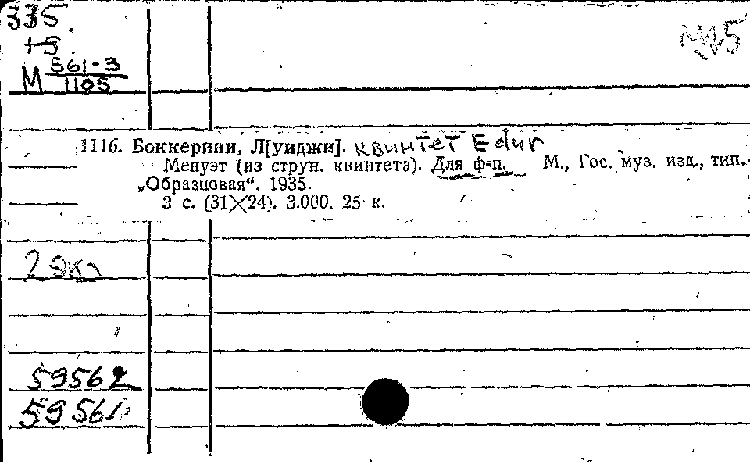 335
+5
М 561-3
1105
1116. Боккерини, Л[уиджи]. квинтет Edur
Менуэт (из струн. квинтета). Для ф-п. М., Гос. муз. изд., тип.
„Образцовая“. 1935.
3 с. (31×24). 3.000. 25 к.
2 экз
59562
59561